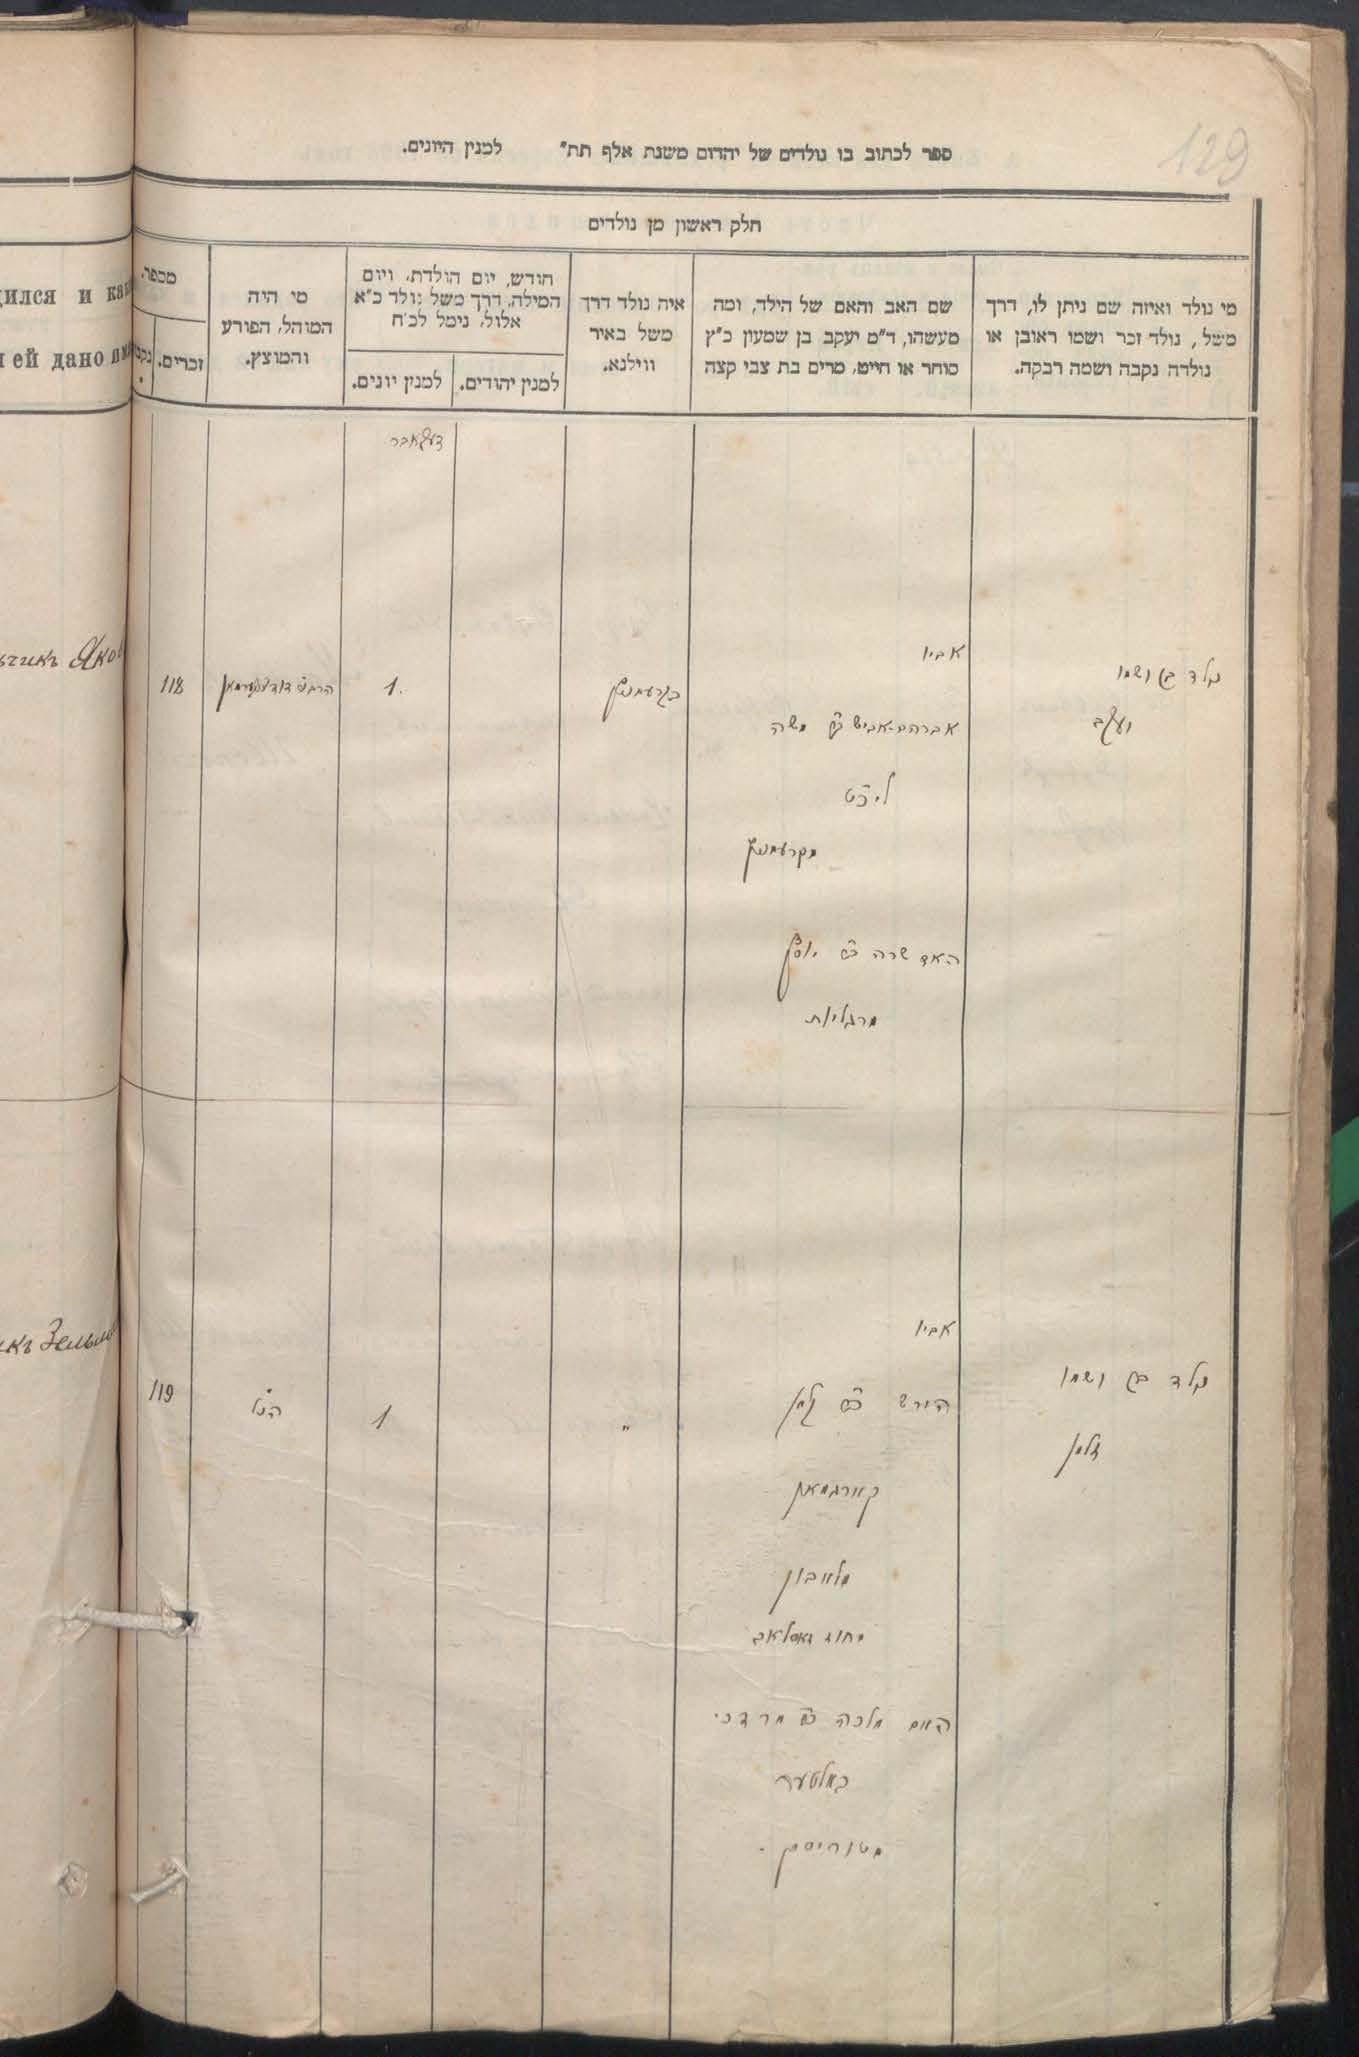 129
ספר לכתוב בו נולדים של יהדום משנת אלף תת״ למנין היונים.
חלק ראשון מן נולדים
מי נולד ואיזה שם ניתן לו, דרך
משל, נולד זכר ושמו ראובן או
נולדה נקבה ושמה רבקה.
שם האב והאם של הילד, ומה
מעשהו, ד״מ יעקב בן שמעון כ״ץ
סוחר או חייט, מרים בת צבי קצה
איה נולד דרך
משל באיר
ווילנא.
חודש, יום הולדת, ויום
המילה, דרך משל נולד כ״א
אלול, נימל לכ״ח
למנין יהודים.
למנין יונים.
מי היה
המוהל, הפורע
והמוצץ.
מספר.
זכרים.
דעקאבר
נולד בן ושמו
יעקב
אביו
אברהם אביש ב״ר משה
מקרעמניץ
האם שרה ב״ר יוסף
מרגליות
בקרעמניץ
1.
118
נולד בן ושמו
זלמן
אביו
הירש ב״ר זלמן
קורגמאן
האם מלכה ב״ר מרדכי
באלטער
מטוריסק.
״
1
הנ״ל
119
дился и как
и ей дано имя
Яков
Зельман